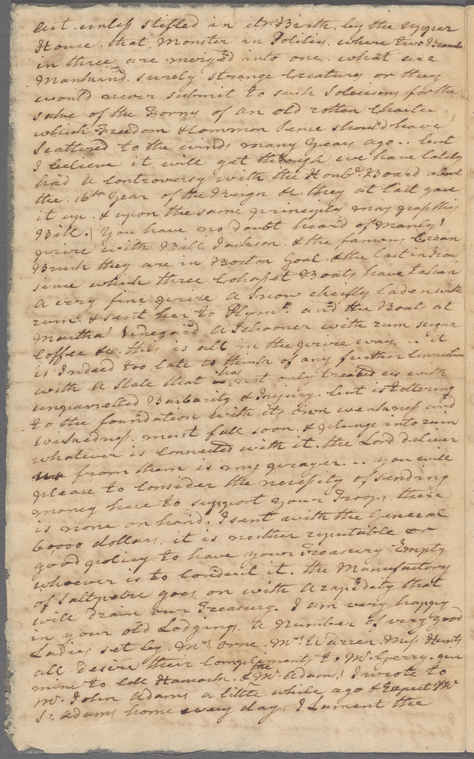 out. unless stifled in its Birth by the upper
House. that Monster in Politics. where two Branches
in three are merged into one. what are
Mankind. surely strange Creatures or they
would never submit to such Solecisms for the
sake of the Forms of an old rotten Charter
which Freedom & Common Sense should have
scattered to the winds many Years ago.. but
I believe it will get through. we have lately
had a Controversy with the Honble Board about
the 16th Year of the Reign &c. they at last gave
it up. & upon the same principles may pass this
Bill. You have no doubt heard of Manly's
prize with Bill Jackson. & the famous Crean
Brush they are in Boston Goal. & the last in Irons,
since which three Cohasset Boats have taken
a very fine prize a Snow chiefly Laden with
rum & sent her to Plymo. and the Boats at
Martha's Vineyard a Schooner with rum sugar
Coffee &c. this is all in the prize way... it
is Indeed too late to think of any further Connection
with a State that has not only treated us with
unparrelled Barbarity & Injury. but is tottering
to the foundation with its own weakness and
wickedness. must fall soon. & plunge into ruin
whatever is connected with it. the Lord deliver
us from them is my prayer... you will
please to consider the necessity of sending
money here to support your Troops. there
is none on hand. I sent with the General
60000 dollars. it is neither reputable or
good policy to have your Treasury Empty
whoever is to conduct it. the Manufactory
of saltpetre goes on with a rapidity that
will drain our Treasury. I am very happy
in your old Lodgings. a Number of very good
Ladies set by. Mrs Orne. Mrs Warren. Miss Hunts
all desire their Compliments to Mr Gerry. give
mine to Coll Hancock. & the Mr Adams's I wrote to
Mr John Adams a little while ago & Expect Mr
S: Adams home every day. I Lament the